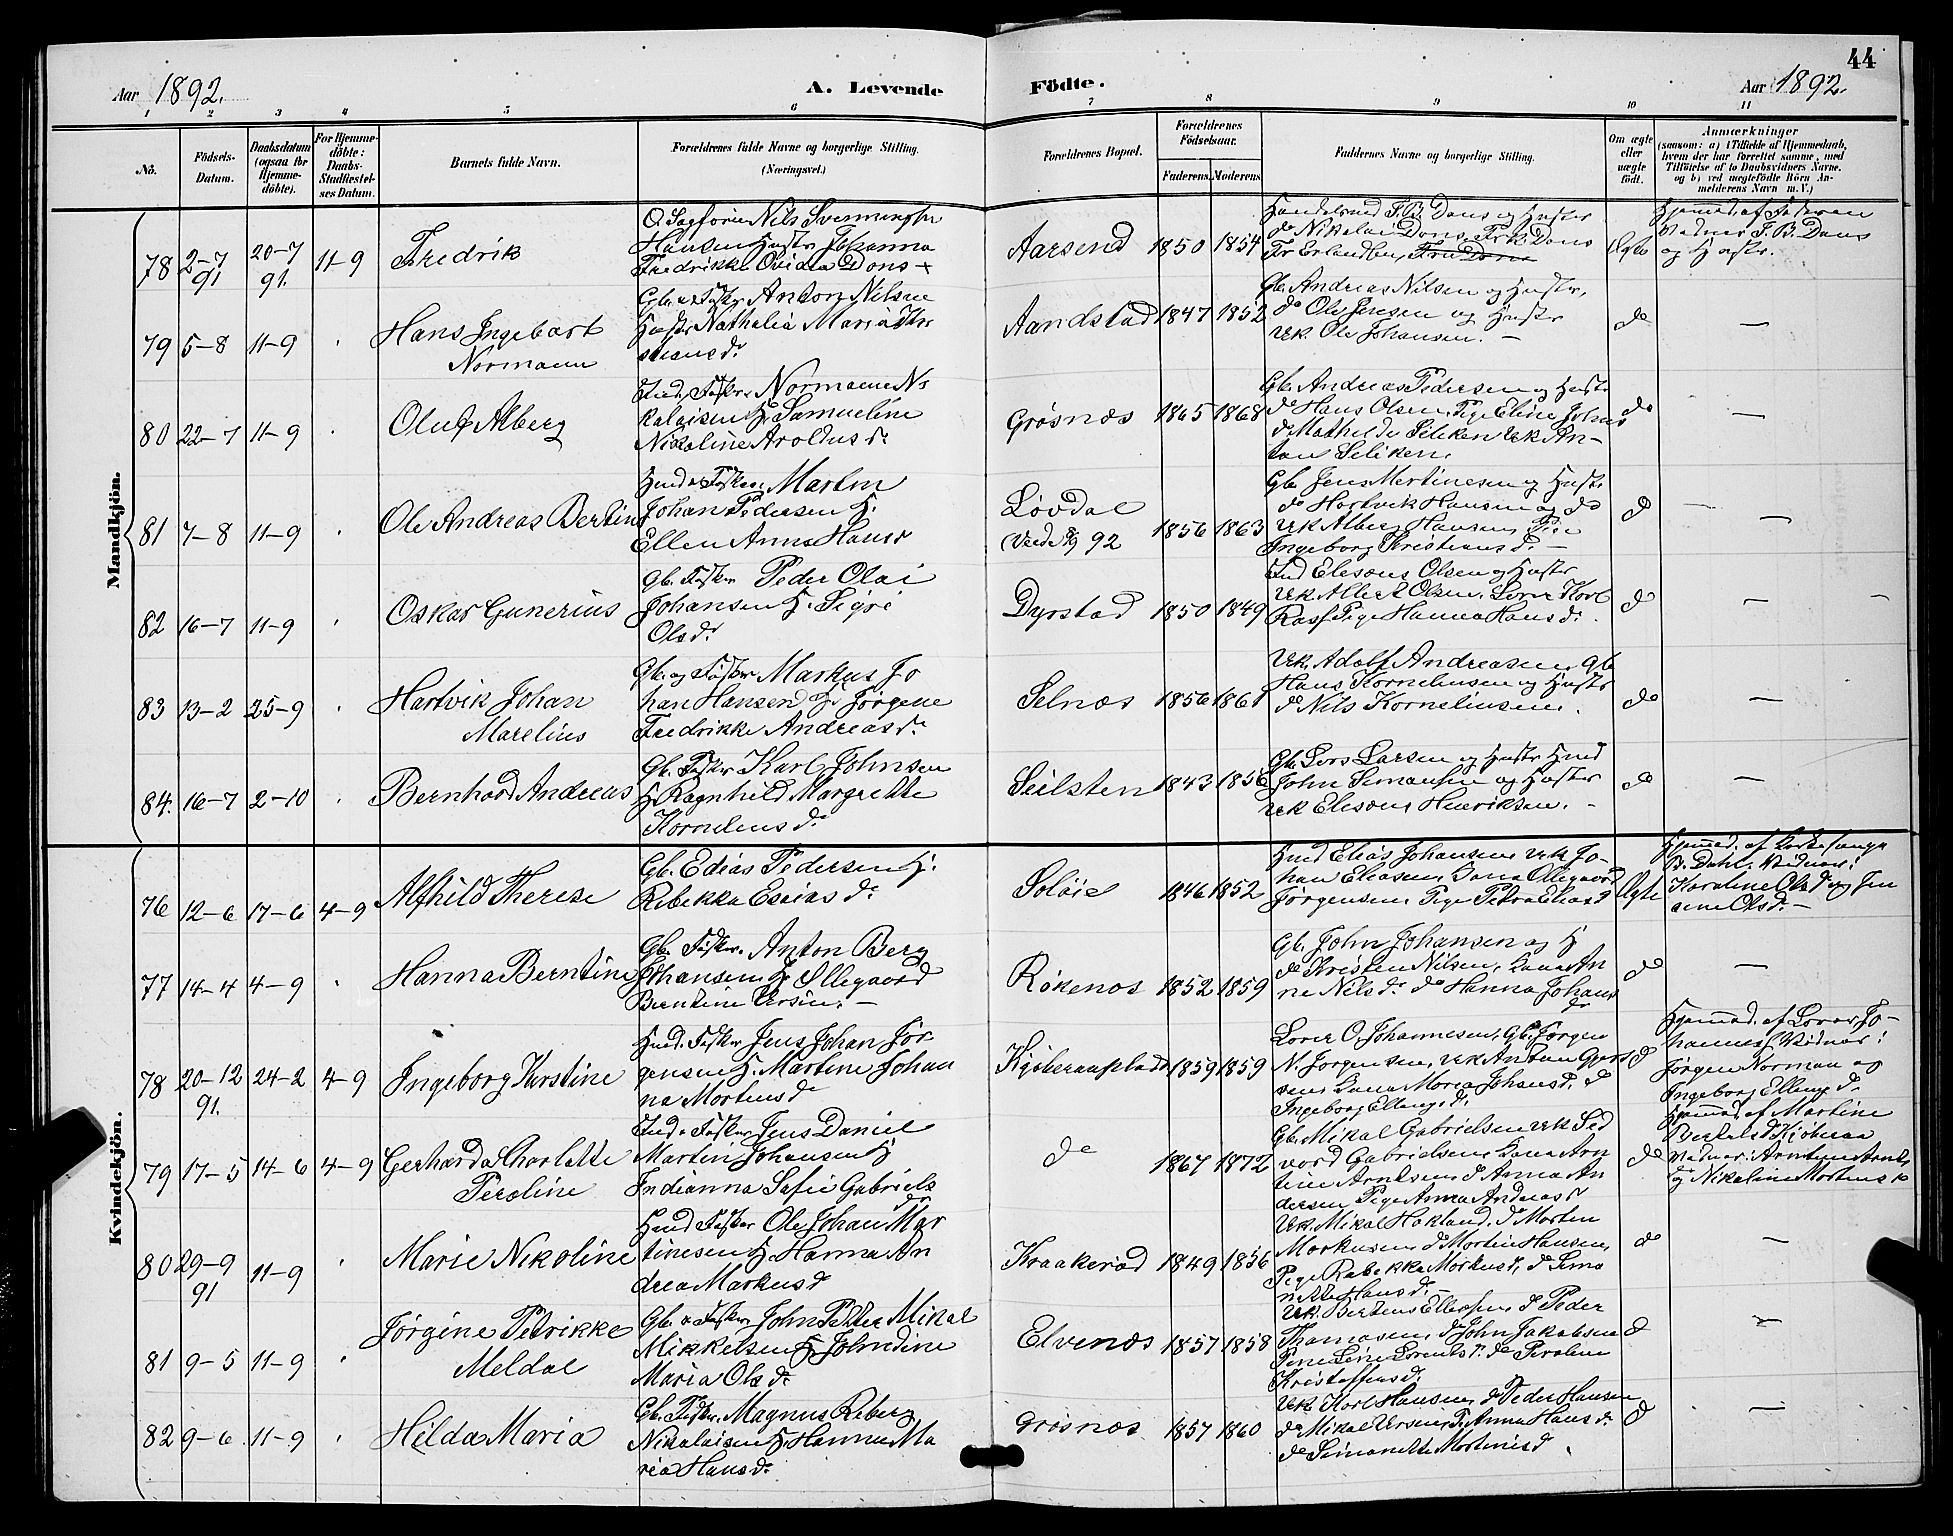 44
Aar 1892.
A. Levende
Födte.
Aar 1892.
1 2 3 4 5 6 7 8 9 10 11
No.
Födsels-
Datum.
Daabsdatum
(ogsaa for
Hjemme-
döbte).
For Hjemme-
döbte:
Daabs-
Stadfæstel-
ses Datum.
Barnets fulde Navn.
Forældrenes fulde Navne og borgerlige Stilling.
(Næringsvei.)
Forældrenes Bopæl.
Forældrenes
Födselsaar.
Faderens. Moderens.
Faddernes Navne og borgerlige Stilling.
Om ægte
eller
uægte
födt.
Anmærkninger
(saasom: a) i Tilfælde af Hjemmedaab,
hvem der har forrettet samme, med
Tilföielse af to Daabsvidners Navne.
og b) ved uægtefödte Börn An-
melderens Navn m. V.)
Mandkjön.
78 2-7 91 20-7 91. 11-9 Fredrik
Nils Svenningsen
Hansen Hustr Johanna
Fredrikke Ovidia Dons
Aarsend 1850 1854
Handelsmd F. B. Dons og Hustr
do Nikolai Dons, Frk Dons
Fr Erlandsen,
Ægte
Hjemmed. af Faderen
Vidner F. B. Dons
og Hustr.
79 5-8 11-9 Hans Ingebart
Normann
Gb. og Fisker Anton Nilsen
Hustr Nathalia Maria
Aandstad 1847 1852
Gb. Andreas Nilsen og Hustr,
do Ole Jensen og Hustr
Ole Johansen. —
do —
80 22-7 11-9 Oluf Alberg
Ind. Fisker Normann Ni
kolaisen H. Samueline
Nikoline Aroldus d.
Grøsnæs 1865 1868
Gb. Andreas Pedersen og Hustr
do Hans Olsen, Pige Eline Johns
d. Mathilde Seliken Uk An-
ton Seliken.
do —
81 7-8 11-9 Ole Andreas Bertin
Husmd Fisker Martin
Johan Pedersen H.
Ellen Anna Hans d
Løvdal
92
1856 1863
Gb. Jens Martinesen og Hustr
do Hartvik Hansen og do
Uk Alberg Hansen, Pige
Ingeborg Kristians d. —
do —
82 16-7 11-9 Oskar Gunerius
Gb. Fisker Peder Olai
Johansen H. Sigri
Ols d.
Dyrstad 1850 1849
Ind Elesæus Olsen og Hustr
Uk Albert Olsen, Lærer Karl
Pige Hanna Hans d.
do —
83 13-2 25-9 Hartvik Johan
Marelius
Gb. og Fisker Markus Jo
han Hansen H. Jørgene
Fredrikke Andreas d.
Selnæs 1856 1861
Uk. Adolf Andreasen, Gb
Hans Korneliusen og Hustr
do Nils Korneliusen.
do —
84. 16-7 2-10 Bernhard Andreas
Gb. Fisker Karl Johnsen
H Ragnhild Margrethe
Kornelius d.
Seilsten 1843 1856
Gb. Lars Larsen og Hustr Husmd
John Simonsen og Hustr
Uk Elesæus Henriksen. —
do —
Kvindekjön.
76 12-6 17-6 4-9 Alfhild Therese
Gb. Edias Pedersen H.
Rebekka Esaias d.
Soløie 1846 1852
Husmd Elias Johansen Uk Jo-
han Eliasen, Kona Ollegaard
Jørgensen, Pige Petra Elias d
Ægte
Hjemmed. af Kirkesanger
B. Dahn Vidner:
Karoline Ols d og Jen
sine Ols d. —
77 14-4 4-9 Hanna Berntine
Gb. Fisker Anton Berg
Johansen H Ollegaard
Berntine Ursin. —
Røkenes 1852 1859
Gb. John Johansen og H
do Kristen Nilsen, Kona An
ne Nils d. do Hanna Johans
d.
do —
78 20-12 91. 24-2 4-9 Ingeborg Kirstine
Husmd. Fisker Jens Johan Jør
gensen H. Martine Johan
na Mortens d
1859 1859
Lærer O Johannesen, Gb. Jørgen
N. Jørgensen, Uk Anton
Kona Maria Johans d. d
Ingeborg Ellings d.
do
Hjemmed. af Lærer Jo-
hannes. Vidner:
Jørgen Norman og
Ingeborg Ellings d.
79 17-5 14-6 4-9 Gerharda Charlotte
Peroline
Ind. Fisker Jens Daniel
Martin Johansen H
Indianna Sofie Gabriels
d
do 1867 1872
Gb. Mikal Gabrielsen Uk Sed
vard Gabrielsen, Kona Arn
tine Arntsen d Anna An
dersen Pige Anna Andreas d
do
Hjemmed. af Martine
Vidner: Arntine Arnts
og Nikoline Mortens d
80 29-9 91 11-9 Marie Nikoline
Husmd Fisker Ole Johan Mar
tinesen H. Hanna An
drea Markus d
Kraakerød 1849 1856
Uk. Mikal Hokland, do Morten
Markusen do Martin Hansen,
Pige Rebekka Markus d. do Simo
nette Hans d. —
do —
81 9-5 11-9 Jørgine Petrikke
Meldal
Gb. o Fisker John Petter Mikal
Mikkelsen H Johndine
Maria Ols d.
Elvenæs 1857 1858
Uk. Bertens Ellefsen d Peder
Thomasen, do John Jakobsen
Pine Line Lorents d. do Peroline
Kristoffers d.
do —
82 9-6 11-9 Hilda Maria
Gb. Fisker Magnus Reberg
Nikolaisen H. Hanna Ma
ria Hans d.
Grøsnæs 1857 1860
Uk. Karl Hansen, do Peder Hansen
do Mikal Ursin, P. Anna Hans d.
do Simonette Mortens d.
do —